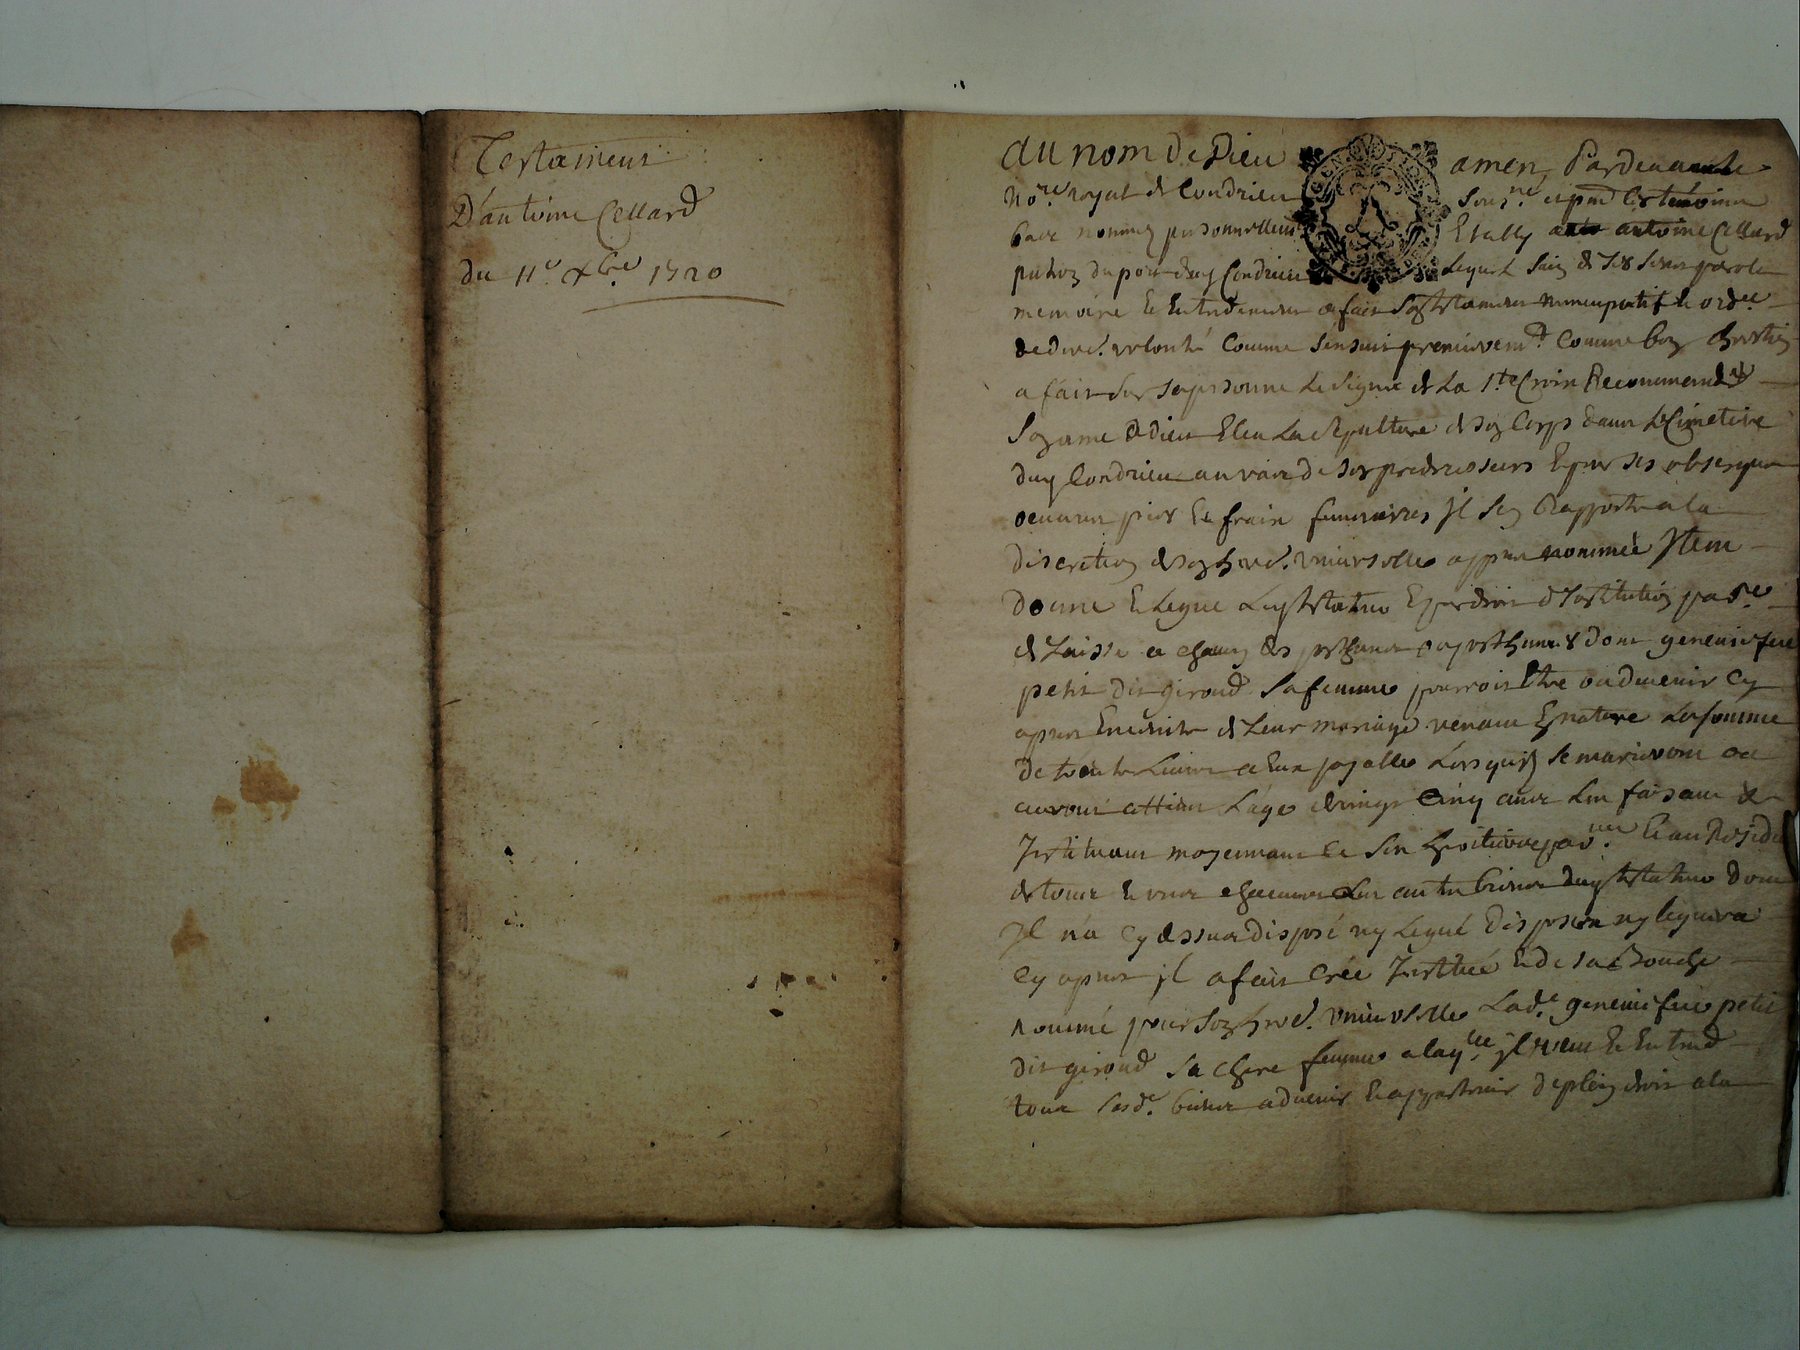 Testament
D'antoine Cellard
du 11e Xbre 1720
au nom de Dieu amen, Pardevant le
nore royal de Condrieu sousné et pnt les témoins
bas nommez personnellemt Estably antoine Cellard
du port duy Condrieu Lequel sain de ses sens parole
memoire et Entendement a fait son testament nuncupatif et ordce
de dere volonté Comme sensuit premieremt Comme bon chrestien
a fait sur sa personne Le signe de La Ste Croix Recommandé
son ame a dieu Eleu La sepulture de son Corps dans Le Cimetiere
duy Condrieu au vas de ses predecesseurs Et pour ses obseques
oeuvres pies et frais funeraires jl sen Rapporte a la
discretion de son hered. universelle appres nommée Jtem
donne et Legue Ley testateur Et par droit d'Institution
et Laisse a chacun des posthumes ou posthumes dont genevieefve
petit dit giroud sa femme pourroit Etre ou devenir Cy
apres Enceinte de Leur mariage venant En nature La somme
de trente Livres a Eux payable Lors quils se marieront ou
auront atteint L'age de vingt Cinq ans Les faisant et
Instituant moyennant ce ses heritiers parers Et au Residu
de tous et uns chacuns Les autres biens duy testateur dont
Jl n'a Cy dessus disposé ny Legué disposera ny leguera
Cy apres jl a fait Créé Institué et de sa Bouche
nommé pour son hered. universelle Lade genevieefve petit
dit giroud sa chere femme a laqlle jl veut et Entend
tous sesde biens advenir et appartenir de plein droit a la